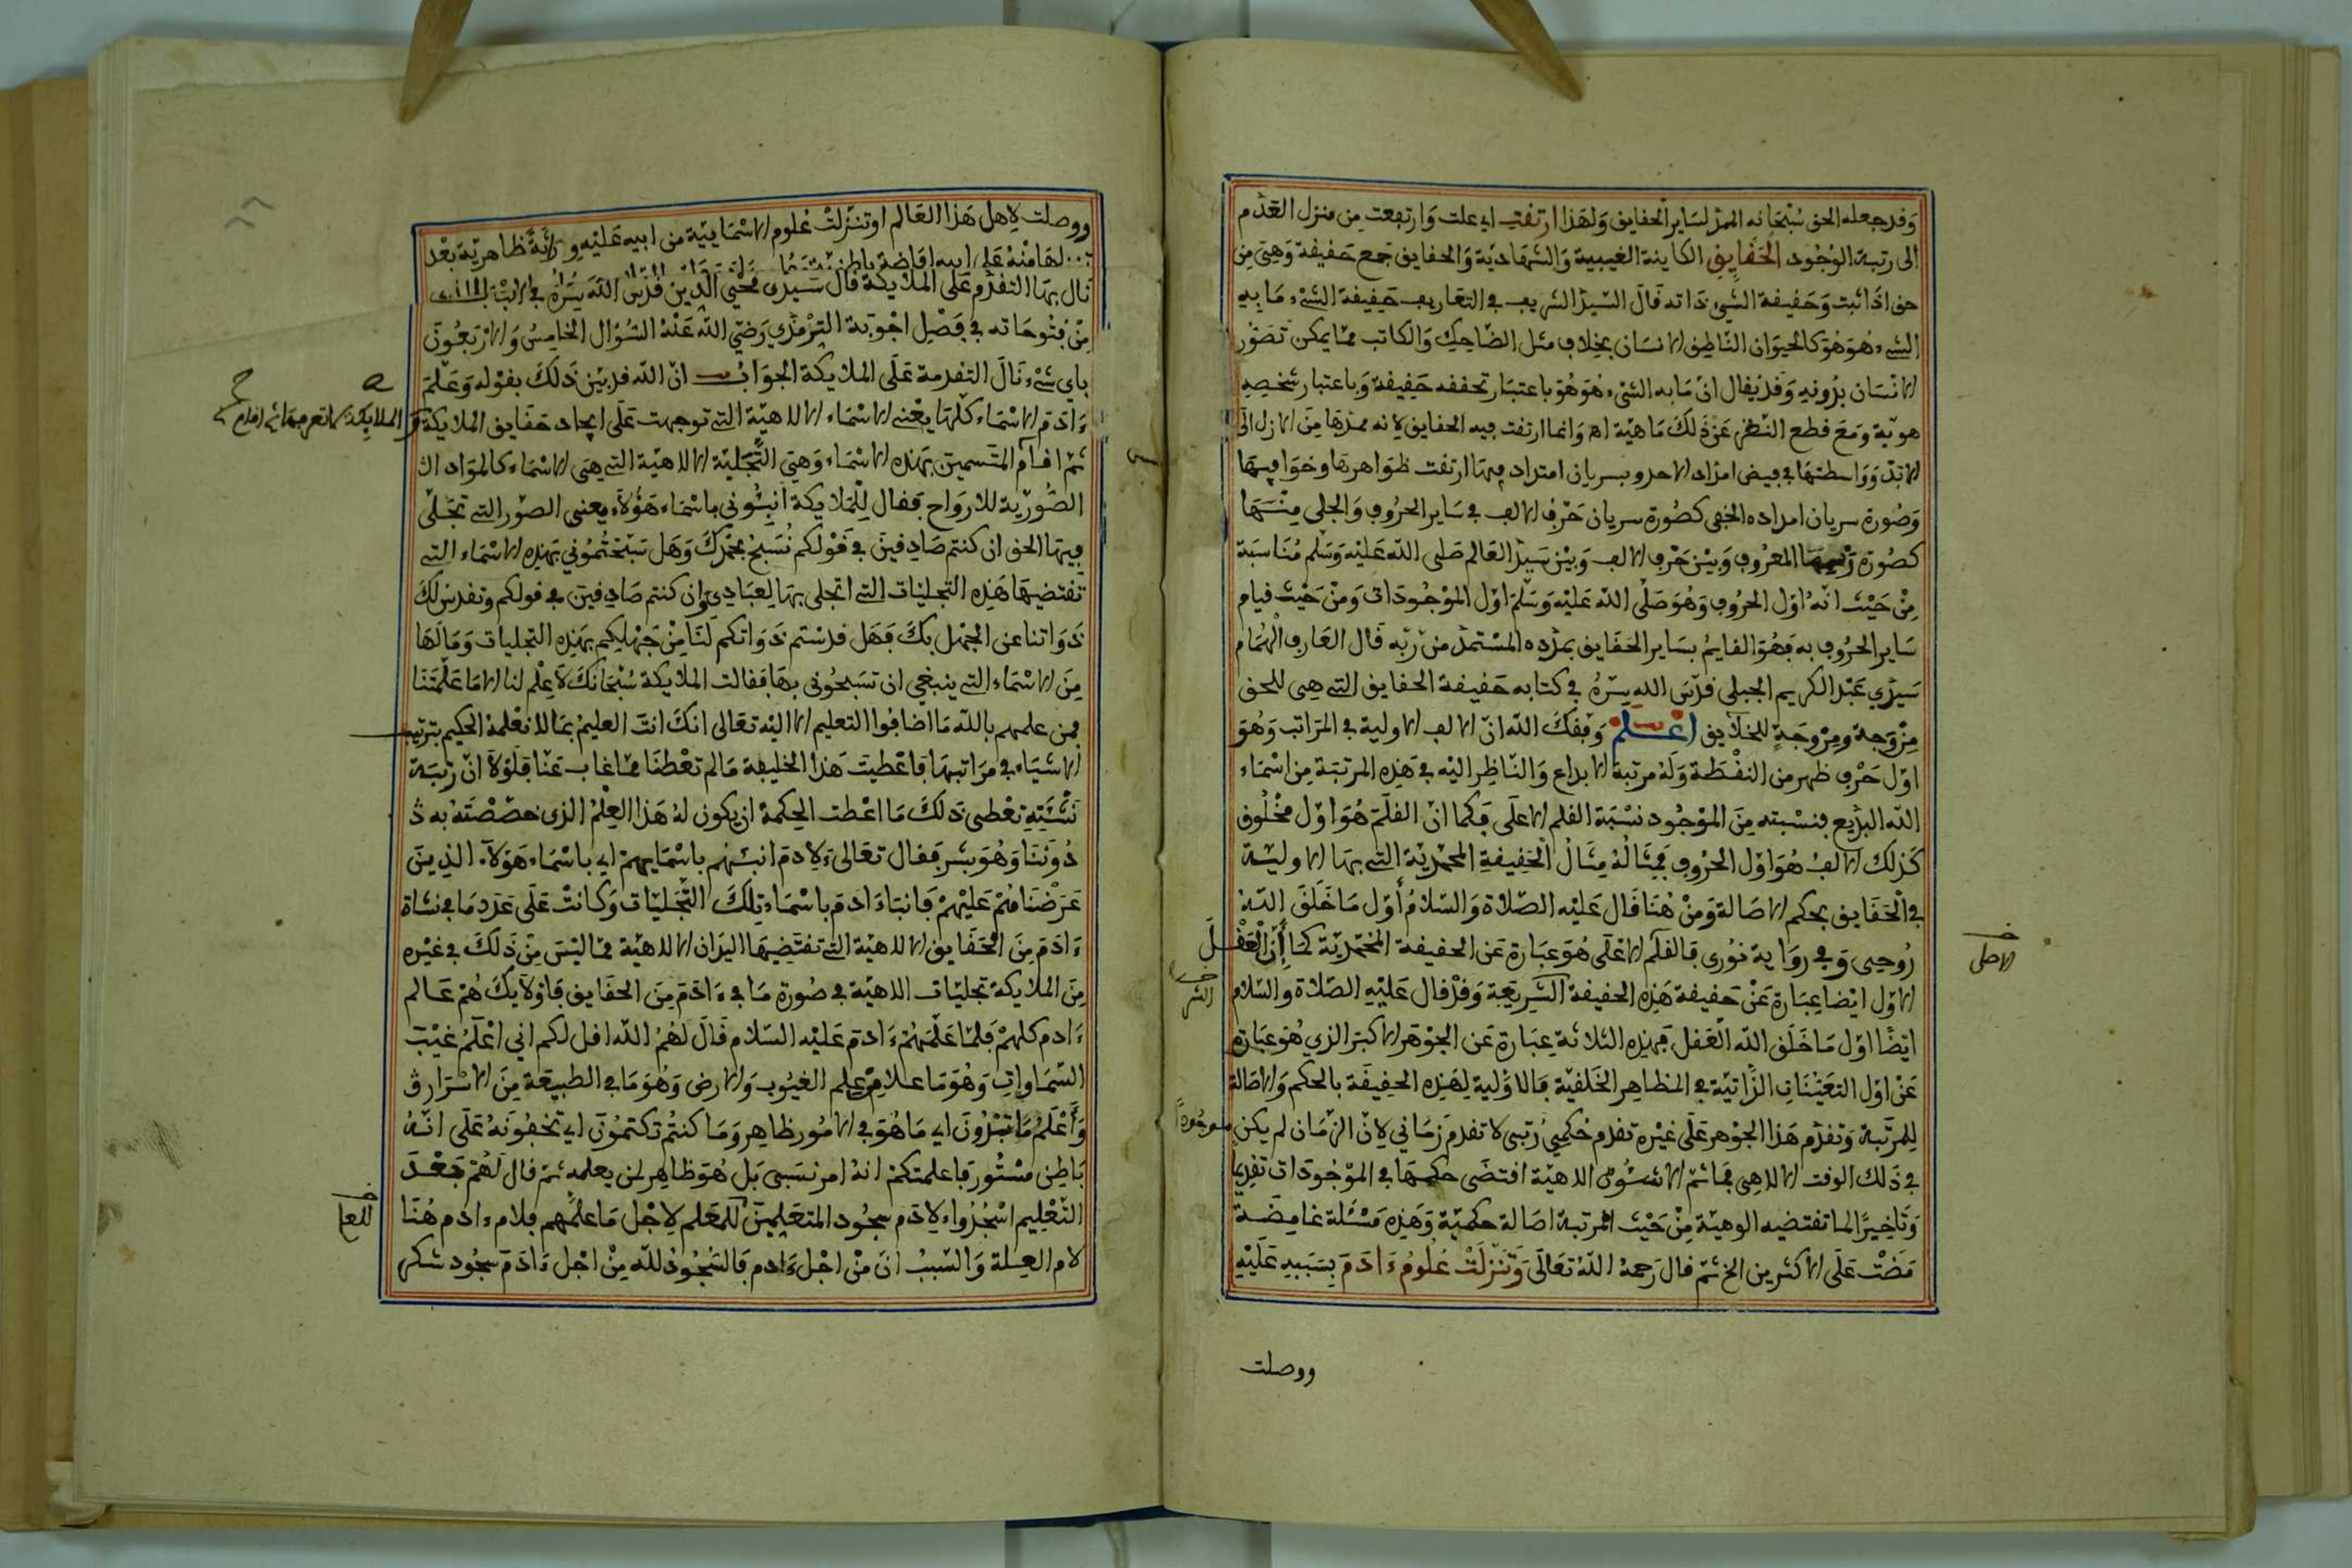 وقد جعله الحق سبحانه الممد لساير الحقايق ولهذا ارتقت اي علت وارتفعت من منزل العدم
الى رتبة الوجود الحقايق الكاينة الغيبية والشهادية والحقايق جمع حقيقة وهي من
حق اذا ثبت وحقيقة الشيء ذاته قال السيد الشريف في التعاريف حقيقة الشيء ما به
الشيء هو هو كالحيوان الناطق الانسان بخلاف مثل الضاحك والكاتب مما يمكن تصور
الانسان بدونه وقد يقال ان ما به الشيء هو هو باعتبار تحققه حقيقة وباعتبار تشخصه
هوية ومع قطع النظر عن ذلك ماهية اه وانما ارتقت فيه الحقايق لانه ممدها من الازل الى
الابد وواسطتها في فيض امداد الاحد وبسريان امتداد فيها ارتقت ظواهرها وخوافيها
وصورة سريان امداده الخفي كصورة سريان حرف الالف في ساير الحروف والجلي منها
كصورة المعروف وبين حرف الالف وبين سيد العالم صلى الله عليه وسلم مناسبة
من حيث انه اول الحروف وهو صلى الله عليه وسلم اول الموجودات ومن حيث قيام
ساير الحروف به فهو القايم بساير الحقايق بمدده المستمد من ربه قال العارف الهمام
سيدي عبد الكريم الجيلي قدس الله سره في كتابه حقيقة الحقايق التي هي للحق
من وجه ومن وجه للخلايق اعلم وفقك الله ان الالف الاولية في المراتب وهو
اول حرف ظهر من النقطة وله مرتبة الابداع والناظر اليه في هذه المرتبة من اسماء
الله البديع فنسبته من الموجود نسبة القلم الاعلى فكما ان القلم هو اول مخلوق
كذلك الالف هو اول الحروف فمثاله مثال الحقيقة المحمدية التي بها الاولية
في الحقايق بحكم الاصالة ومن هنا قال عليه الصلاة والسلام اول ما خلق الله
روحي وفي رواية نوري فالقلم الاعلى هو عبارة عن الحقيقة المحمدية كما ان العقل
الاول ايضا عبارة عن حقيقة هذه الحقيقة الشريفة وقد قال عليه الصلاة والسلام
ايضا اول ما خلق الله العقل فهذه الثلاثة عبارة عن الجوهر الاكبر الذي هو عبارة
عن اول التعينات الذاتية في المظاهر الخلقية فالاولية لهذه الحقيقة بالحكم والاصالة
للمرتبة وتقدم هذا الجوهر على غيره تقدم حكمي رتبي لا تقدم زماني لان الزمان لم يكن موجودا
في ذلك الوقت الالاهي فما ثم الا شئون الاهية اقتضى حكمها في الموجودات تقديما
وتاخيرا لما تقتضيه الوهية من حيث المرتبة اصالة حكمية وهذه مسئلة غامضة
مضت على الاكثرين الخ ثم قال رحمه الله تعالى وتنزلت علوم ءادم بسببه عليه
الاصل
ووصلت
ووصلت لاهل هذا العالم او تنزلت علوم الاسمايية من ابيه عليه ظاهرية بعد
لها منه على ابيه افاضة باطن
نال بها التقدم على الملايكة قال سيدي محيي الدين قدس الله سره في
من فتوحاته في فصل اجوبة الترمذي رضي الله عنه السؤال الخامس والاربعون
باي شيء نال التقدمة على الملايكة الجواب ان الله قد بين ذلك بقوله وعلم
ءادم الاسماء كلها يعني الاسماء الالاهية التي توجهت على ايجاد حقايق الملايكة
ثم اقام المتسمين بهذه الاسماء وهي التجلية الالاهية التي هي الاسماء كالمواد
الصورية للارواح فقال للملايكة انبئوني باسماء هؤلاء يعني الصور التي تجلى
فيها الحق ان كنتم صادقين في قولكم نسبح بحمدك وهل سبحتموني بهذه الاسماء التي
تقتضيها هذه التجليات التي اتجلى بها لعبادي وان كنتم صادقين في قولكم ونقدس لك
ذواتنا عن الجهل بك فهل قدستم ذواتكم لنا من جهلكم بهذه التجليات وما لها
من الاسماء التي ينبغي ان تسبحوني بها فقالت الملايكة سبحانك لا علم لنا الا ما علمتنا
فمن علمهم بالله ما اضافوا التعليم الا اليه تعالى انك انت العليم بما لا نعلمه الحكيم بترتيب
الاشياء في مراتبها فاعطيت هذا الخليفة ما لم تعطنا مما غاب عنا فلولا ان رتبة
نشئته تعطي ذلك ما اعطت الحكمة ان يكون له هذا العلم الذي خصصته به
دوننا وهو بشر فقال تعالى لادم انبئهم باسمايهم اي باسماء هؤلاء الذين
عرضناهم عليهم فانبا ءادم باسماء تلك التجليات وكانت على عدد ما في نشاة
ءادم من الحقايق الالاهية التي تقتضيها اليدان الالاهية مما ليس من ذلك في غيره
من الملايكة تجليات الاهية في صورة ما في ءادم من الحقايق فاولايك هم عالم
ءادم كلهم فلما علمهم ءادم عليه السلام قال لهم الله اقل لكم اني اعلم غيب
السماوات وهو ما علا من علم الغيوب والارض وهو ما في الطبيعة من الاسرار
واعلم ما تبدون اي ما هو في الامور ظاهر وما كنتم تكتمون اي تخفونه على انه
باطن مستور فاعلمتكم انه امر نسبي بل هو ظاهر لمن يعلمه ثم قال لهم بعد
التعليم اسجدوا لادم سجود المتعلمين للمعلم لاجل ما علمهم فلام ءادم هنا
لام العلة والسبب ان من اجل ءادم فالسجود لله من اجل ءادم سجود شكر